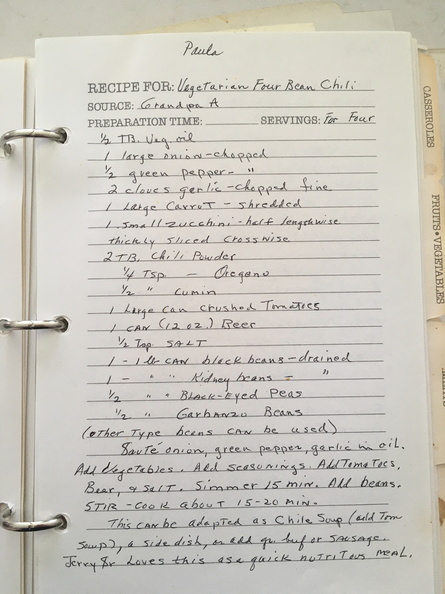 Paula
RECIPE FOR: Vegetarian Four Bean Chili
SOURCE: Grandpa A
PREPARATION TIME: SERVINGS: For Four
½ TB. Veg oil
1 large onion-chopped
½ green pepper- "
2 cloves garlic-chopped fine
1 Large Carrot - shredded
1 small zucchini-half lengthwise
thickly sliced crosswise
2 TB. Chili Powder
¼ Tsp. - Oregano
½ " Cumin
1 Large can crushed Tomatoes
1 CAN (12 oz.) Beer
½ Tsp SALT
1 - 1 lb CAN black beans-drained
1 - " " Kidney beans = "
½ " " BLACK-Eyed Peas
½ " " Garbanzo Beans
(other Type beans CAN be used)
Sauté onion, green pepper, garlic in oil.
Add Vegetables. Add seasonings. Add Tomatoes,
Beer, & SALT. Simmer 15 min. Add beans.
STIR-COOK about 15-20 min.
This can be adapted as Chile Soup (add Tom
Soup), a side dish, or add gr. beef or SAUSAGE.
Jerry Sr Loves this as a quick nutritous meal.
CASSEROLES
FRUITS•VEGETABLES